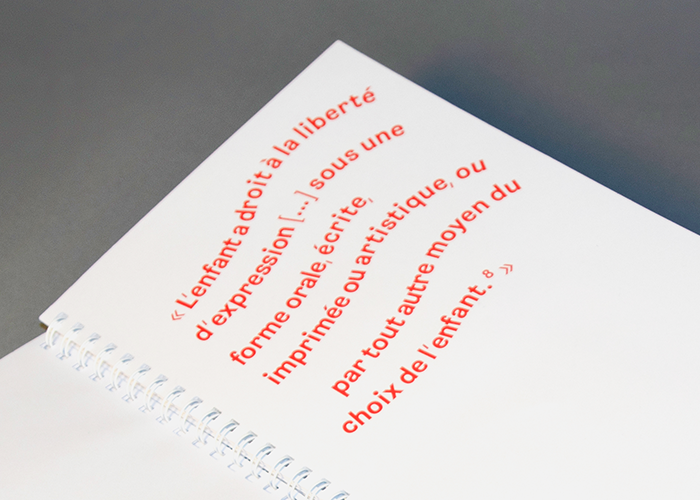 « L'enfant a droit à la liberté
d'expression [...] sous une
forme orale, écrite,
imprimée ou artistique, ou
par tout autre moyen du
choix de l'enfant. 8 »